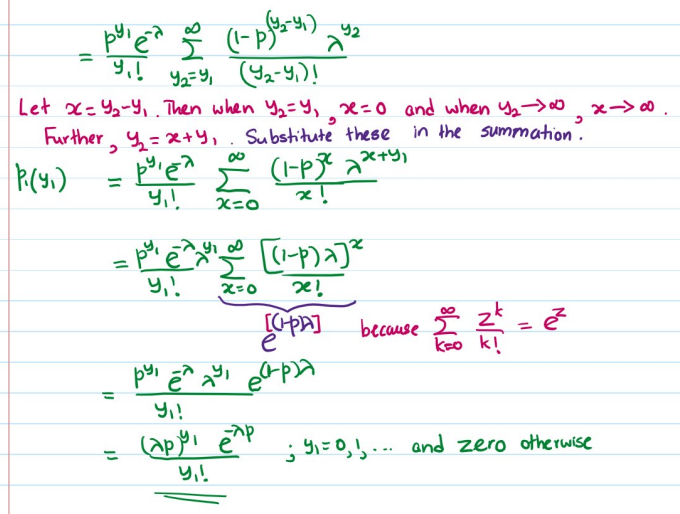 = \frac{p^{y_1} e^{-λ}}{y_1!} \sum_{y_2=y_1}^{∞} \frac{(1-p)^{(y_2-y_1)} λ^{y_2}}{(y_2-y_1)!}
Let x = y_2-y_1. Then when y_2=y_1, x=0 and when y_2→∞, x→∞.
Further, y_2 = x+y_1. Substitute these in the summation.
p_1(y_1) = \frac{p^{y_1} e^{-λ}}{y_1!} \sum_{x=0}^{∞} \frac{(1-p)^x λ^{x+y_1}}{x!}
= \frac{p^{y_1} e^{-λ} λ^{y_1}}{y_1!} \sum_{x=0}^{∞} \frac{[(1-p)λ]^x}{x!}
e^{[(1-p)λ]} because \sum_{k=0}^{∞} \frac{z^k}{k!} = e^z
= \frac{p^{y_1} e^{-λ} λ^{y_1} e^{(1-p)λ}}{y_1!}
= \frac{(λp)^{y_1} e^{-λp}}{y_1!} ; y_1=0,1,... and zero otherwise